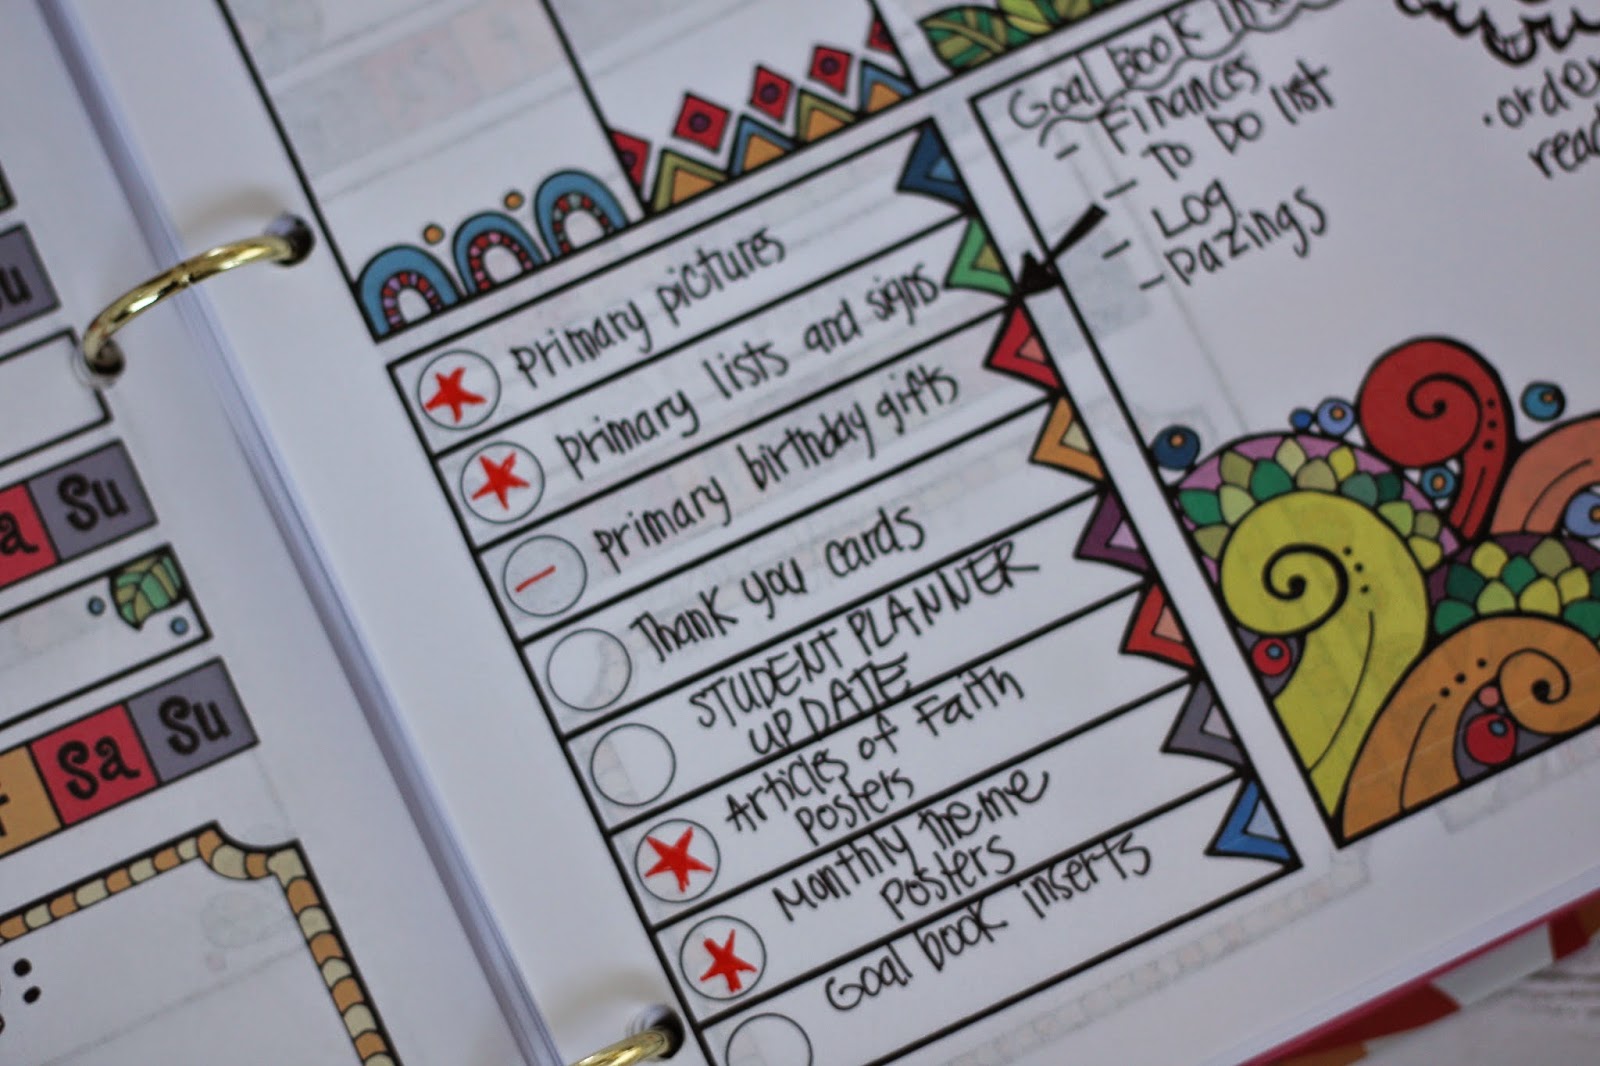 primary pictures
primary lists and signs
primary birthday gifts
Thank you cards
STUDENT PLANNER
UPDATE
Articles of Faith
posters
Monthly theme
posters
Goal book inserts
Goal Book
- Finances
- To Do list
- Log
- pazings
Su
Sa Su